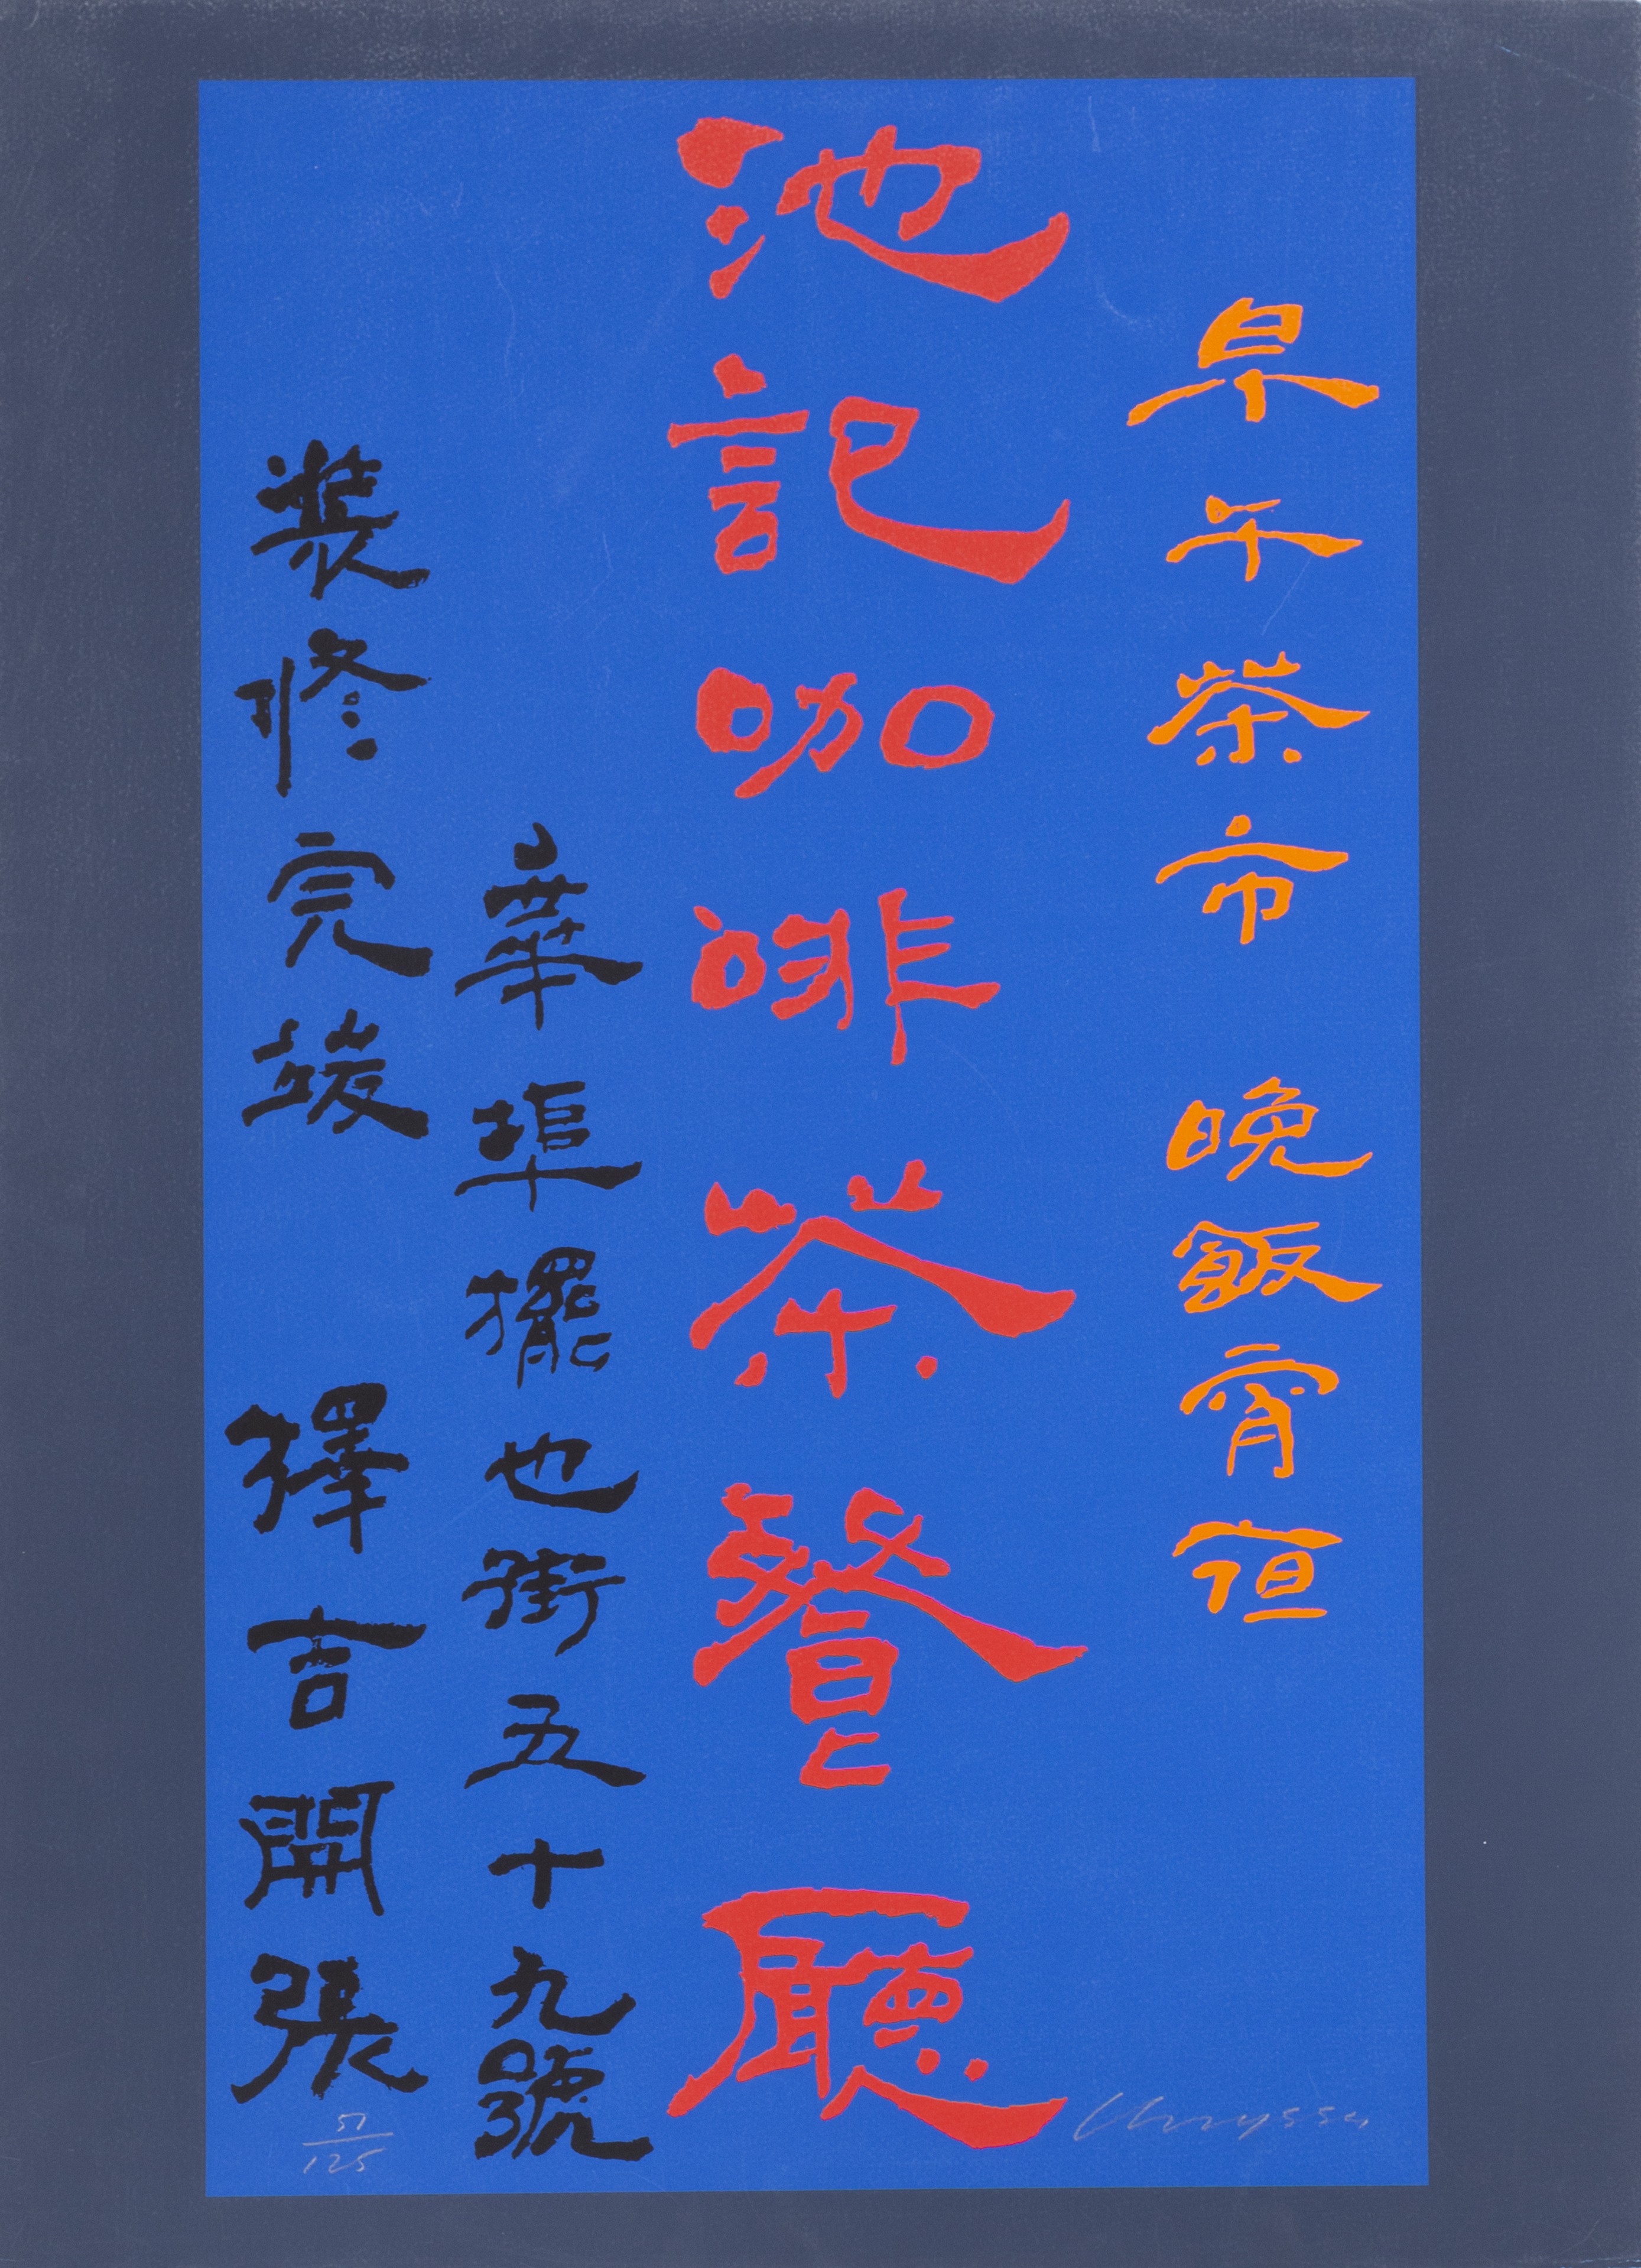 早午茶市 晚飯宵夜
池記咖啡茶餐廳
華埠擺也街五十九號
裝修完竣 擇吉開張
51/125
Chryssa